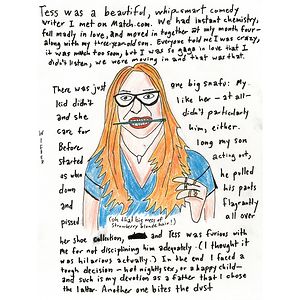 Tess was a beautiful, whip-smart comedy
writer I met on Match.com. We had instant chemistry,
fell madly in love, and moved in together at month four—
along with my three-year-old son. Everyone told me I was crazy,
it was much too soon, but I was so gaga in love that I
didn't listen, we were moving in and that was that.
There was just one big snafu: My
kid didn't like her—at all—
and she didn't particularly
care for him, either.
Before long my son
started acting out,
as when he pulled
down his pants
and flagrantly
pissed all over
(oh that big mess of
strawberry blonde hair!)
her shoe collection, and Tess was furious with
me for not disciplining him adequately. (I thought it
was hilarious actually.) In the end I faced a
tough decision—hot nightly sex, or a happy child—
and such is my devotion as a father that I chose
the latter. Another one bites the dust